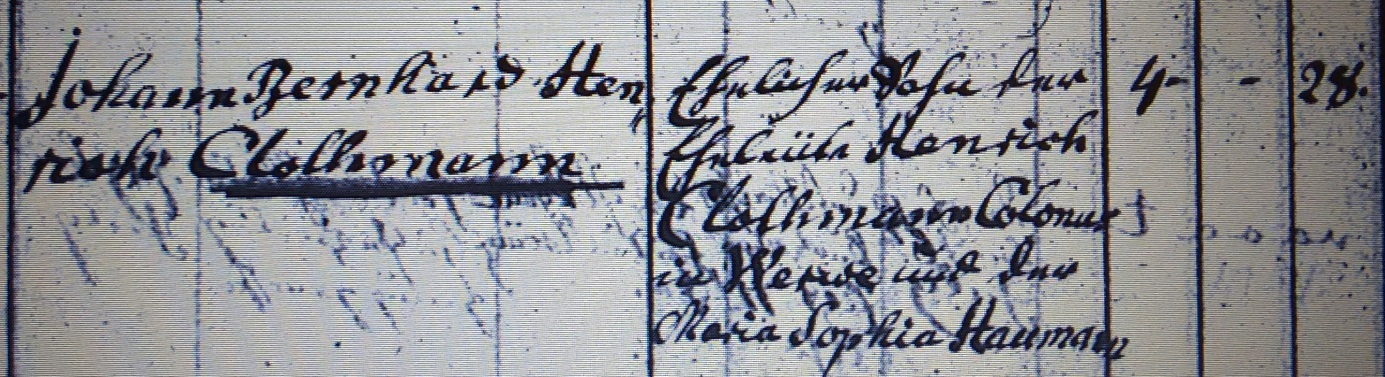 Johann Bernhard Hen
rich Clothmann
Ehelicher Sohn der
Eheleüte Henrich
Clothmann Colonus
in Werse und der
Maria Sophia Haumann
4 - - 28.